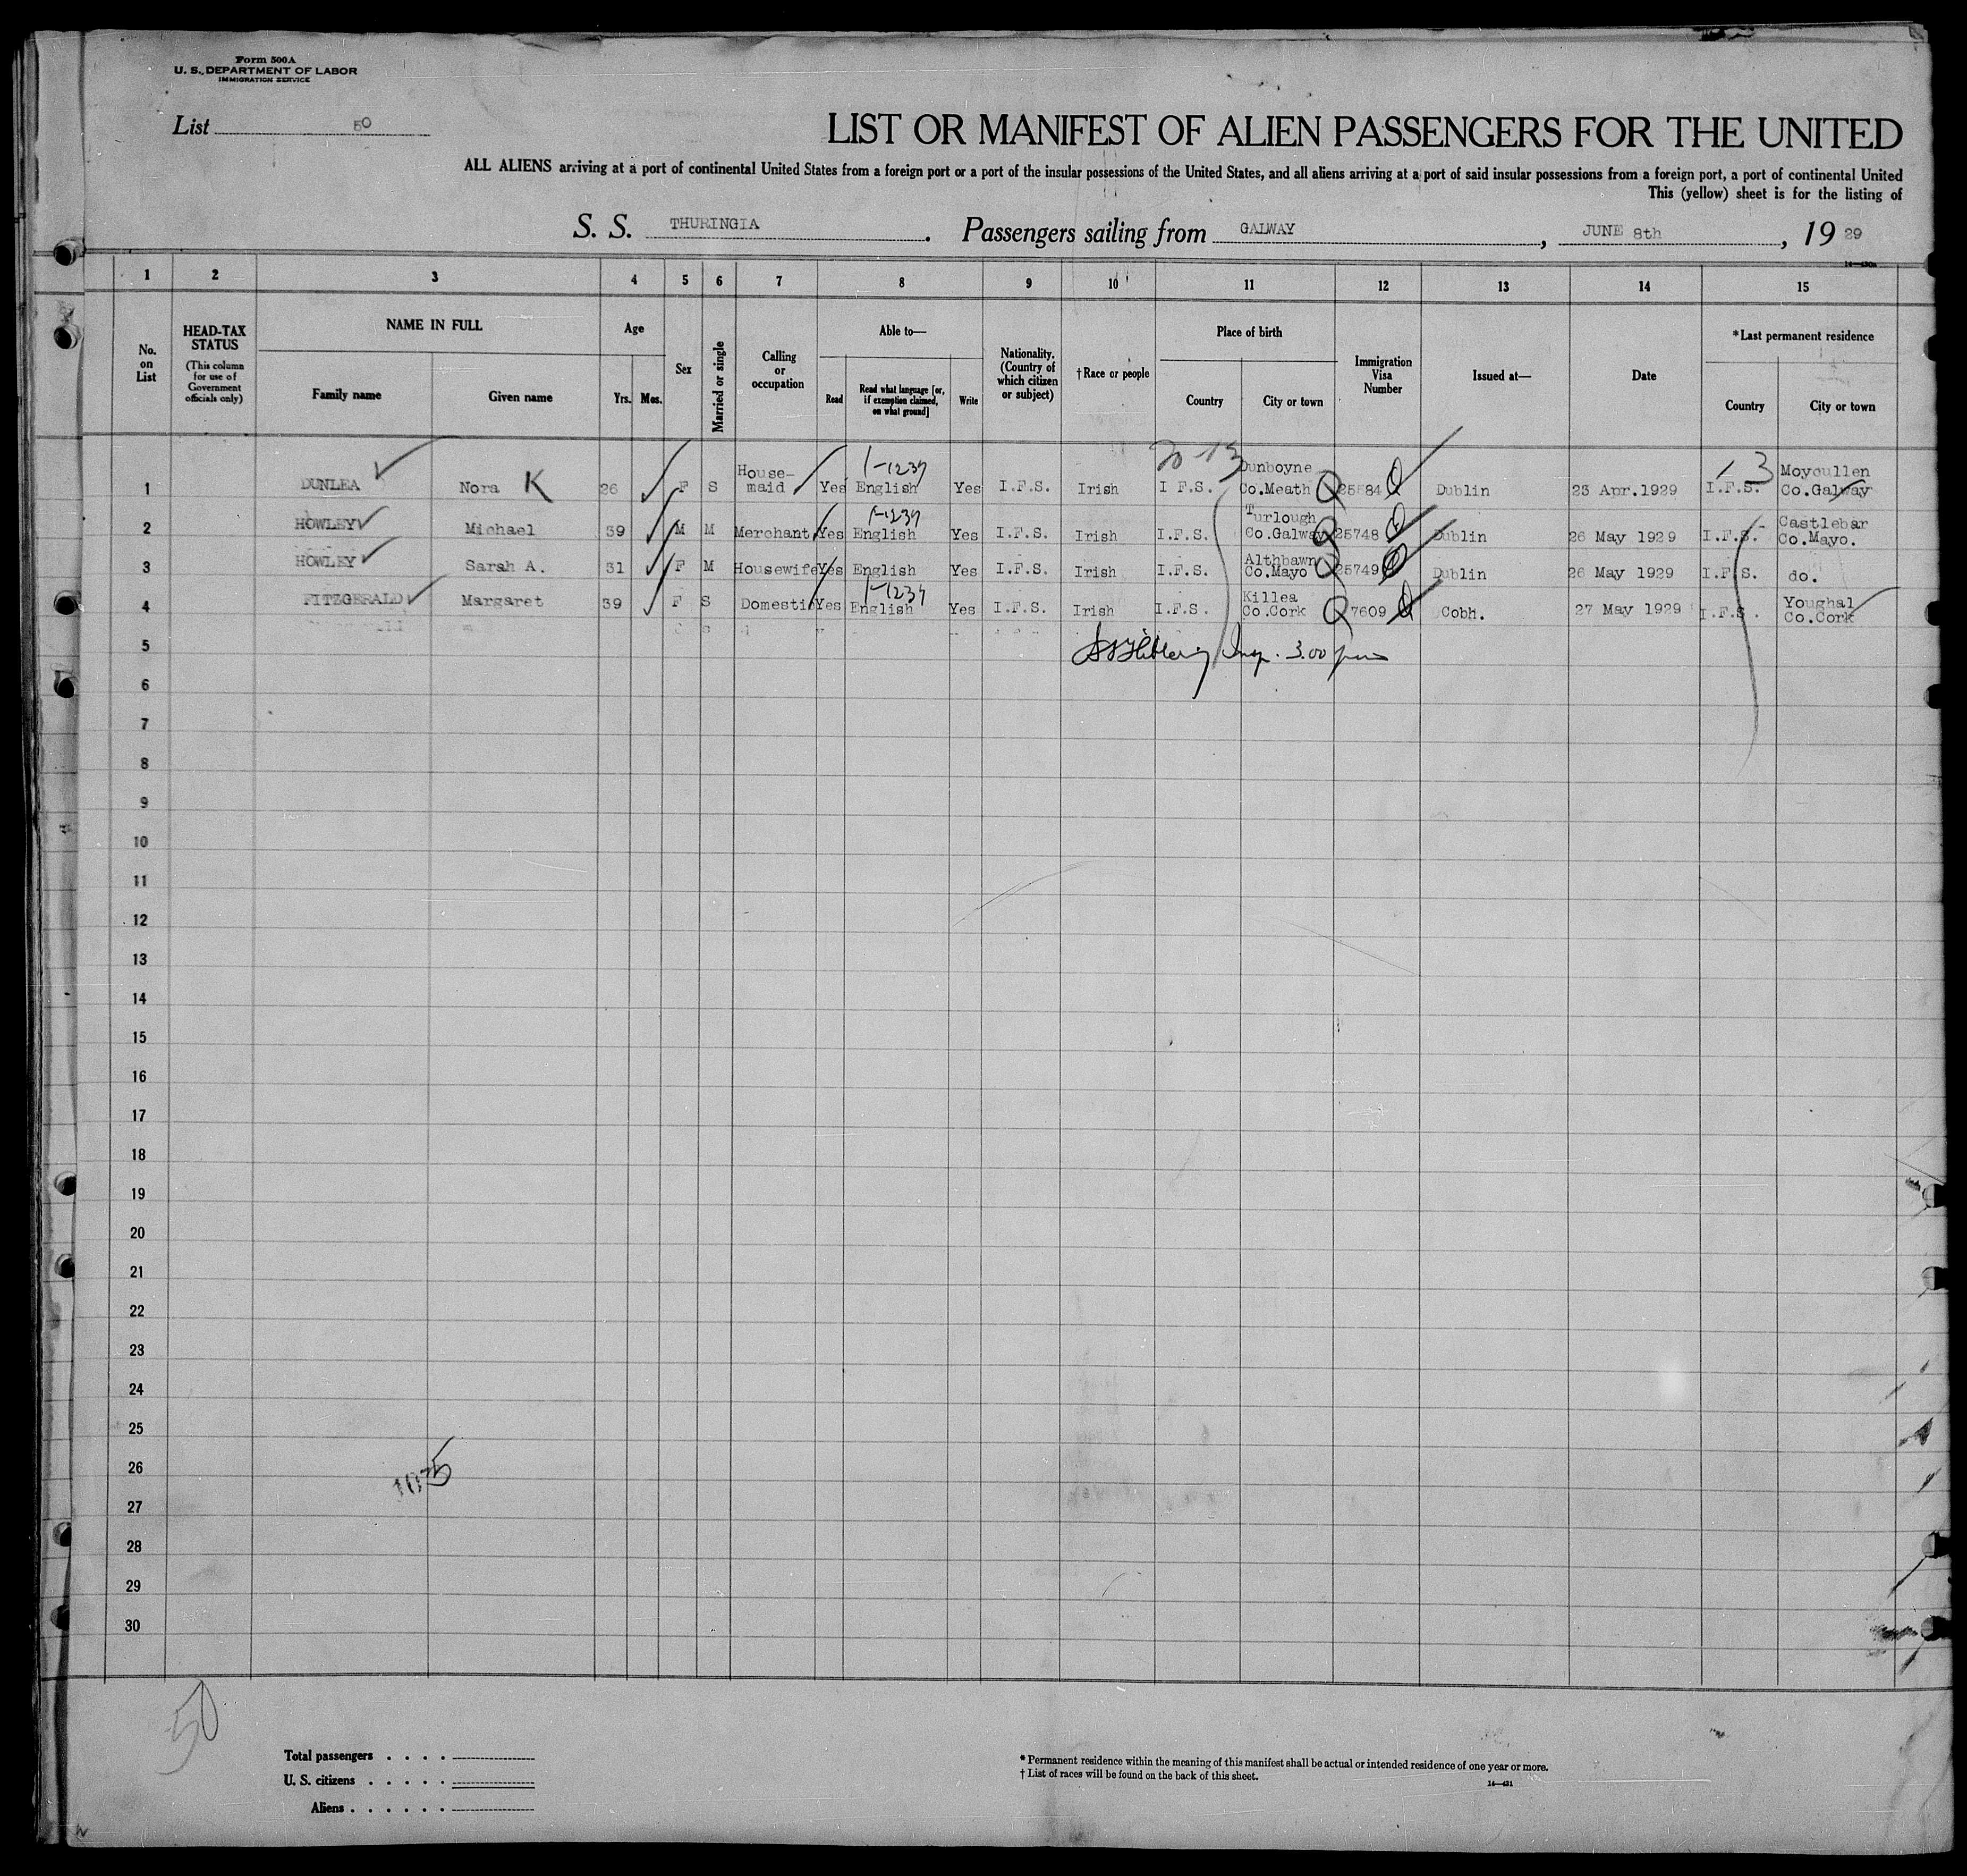 Form 500A
U. S. DEPARTMENT OF LABOR
IMMIGRATION SERVICE
List 50
LIST OR MANIFEST OF ALIEN PASSENGERS FOR THE UNITED
ALL ALIENS arriving at a port of continental United States from a foreign port or a port of the insular possessions of the United States, and all aliens arriving at a port of said insular possessions from a foreign port, a port of continental United
This (yellow) sheet is for the listing of
S. S. THURINGIA. Passengers sailing from GALWAY, JUNE 8th, 19 29
1 2 3 4 5 6 7 8 9 10 11 12 13 14 15
No. on List
HEAD-TAX STATUS
(This column for use of Government officials only)
NAME IN FULL
Family name
Given name
Age
Yrs. Mos.
Sex
Married or single
Calling or occupation
Able to—
Read
Read what language [or, if exemption claimed, on what ground]
Write
Nationality. (Country of which citizen or subject)
†Race or people
Place of birth
Country
City or town
Immigration Visa Number
Issued at—
Date
*Last permanent residence
Country
City or town
1 DUNLEA Nora K 26 F S House-maid Yes English Yes I.F.S. Irish I F.S. Dunboyne Co.Meath Q 25584 Dublin 23 Apr.1929 I.F.S. Moycullen Co.Galway
2 HOWLEY Michael 39 M M Merchant Yes English Yes I.F.S. Irish I.F.S. Turlough Co.Galway Q 25748 Dublin 26 May 1929 I.F.S. Castlebar Co.Mayo.
3 HOWLEY Sarah A. 31 F M Housewife Yes English Yes I.F.S. Irish I.F.S. Althbawn Co.Mayo Q 25749 Dublin 26 May 1929 I.F.S. do.
4 FITZGERALD Margaret 39 F S Domestic Yes English Yes I.F.S. Irish I.F.S. Killea Co.Cork Q 7609 Cobh. 27 May 1929 I.F.S. Youghal Co.Cork
5 Insp. 3.00 pm
6
7
8
9
10
11
12
13
14
15
16
17
18
19
20
21
22
23
24
25
26
27
28
29
30
50
Total passengers
U. S. citizens
Aliens
* Permanent residence within the meaning of this manifest shall be actual or intended residence of one year or more.
† List of races will be found on the back of this sheet.
14—431